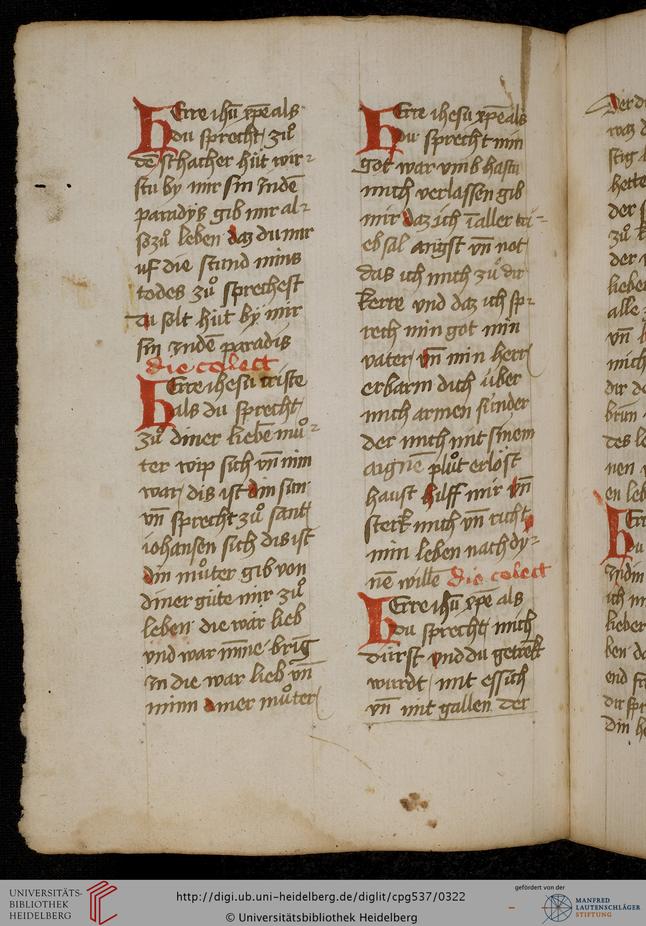 HErre ihu xpe als
du sprecht zuͦ
dē schacher hüt wir-
stu by mir sin Indē
paradys gib mir al-
sozuͦ leben daz du mir
uf die stund mins
todes zuͦ sprechest
du solt hüt by mir
sin Indē paradis
die colect
HErre ihesu criste
als du sprecht
zuͦ diner liebē muͦ-
ter wip sich vn̄ nim
war dis ist din sun
vn̄ sprecht zuͦ sant
iohansen sich dis ist
din muͦter gib von
diner güte mir zuͦ
leben die war lieb
vnd war brig
In die war lieb vn̄
minn diner muͦter
HErre ihesu xpe als
du sprecht min
got war vmb hastu
mich verlassen gib
mir daz ich ī aller tri-
ebsal angst vn̄ not
das ich mich zuͦ dir
kerre vnd daz ich sp-
rech min got min
vater vn̄ min herr
erbarm dich über
mich armen sünder
der mich mit sinem
aignē pluͦt erlöst
haust hilff mir vn̄
sterk mich vn̄ richt
min leben nach dy-
nē willē die colect
HErre ihu xpe als
du sprecht mich
dürst vnd du getrēkt
wurdt mit essich
vn̄ mit gallen Der
UNIVERSITÄTS-
BIBLIOTHEK
HEIDELBERG
http://digi.ub.uni-heidelberg.de/diglit/cpg537/0322
© Universitätsbibliothek Heidelberg
gefördert von der
MANFRED
LAUTENSCHLÄGER
STIFTUNG